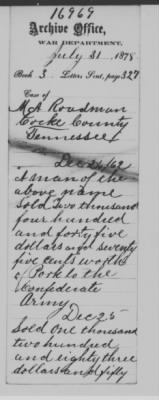 16969
Archive Office,
WAR DEPARTMENT,
July 31, 1878
Book 3, Letters Sent, page 327
Case of
M A Roadman
Cocke County
Tennessee
Dec 24/62
A man of the
above name
Sold Two thousand
four hundred
and forty five
dollars and seventy
five cents worth
of Pork to the
Confederate
Army
Dec 25
Sold One thousand
two hundred
and eighty three
dollars and fifty